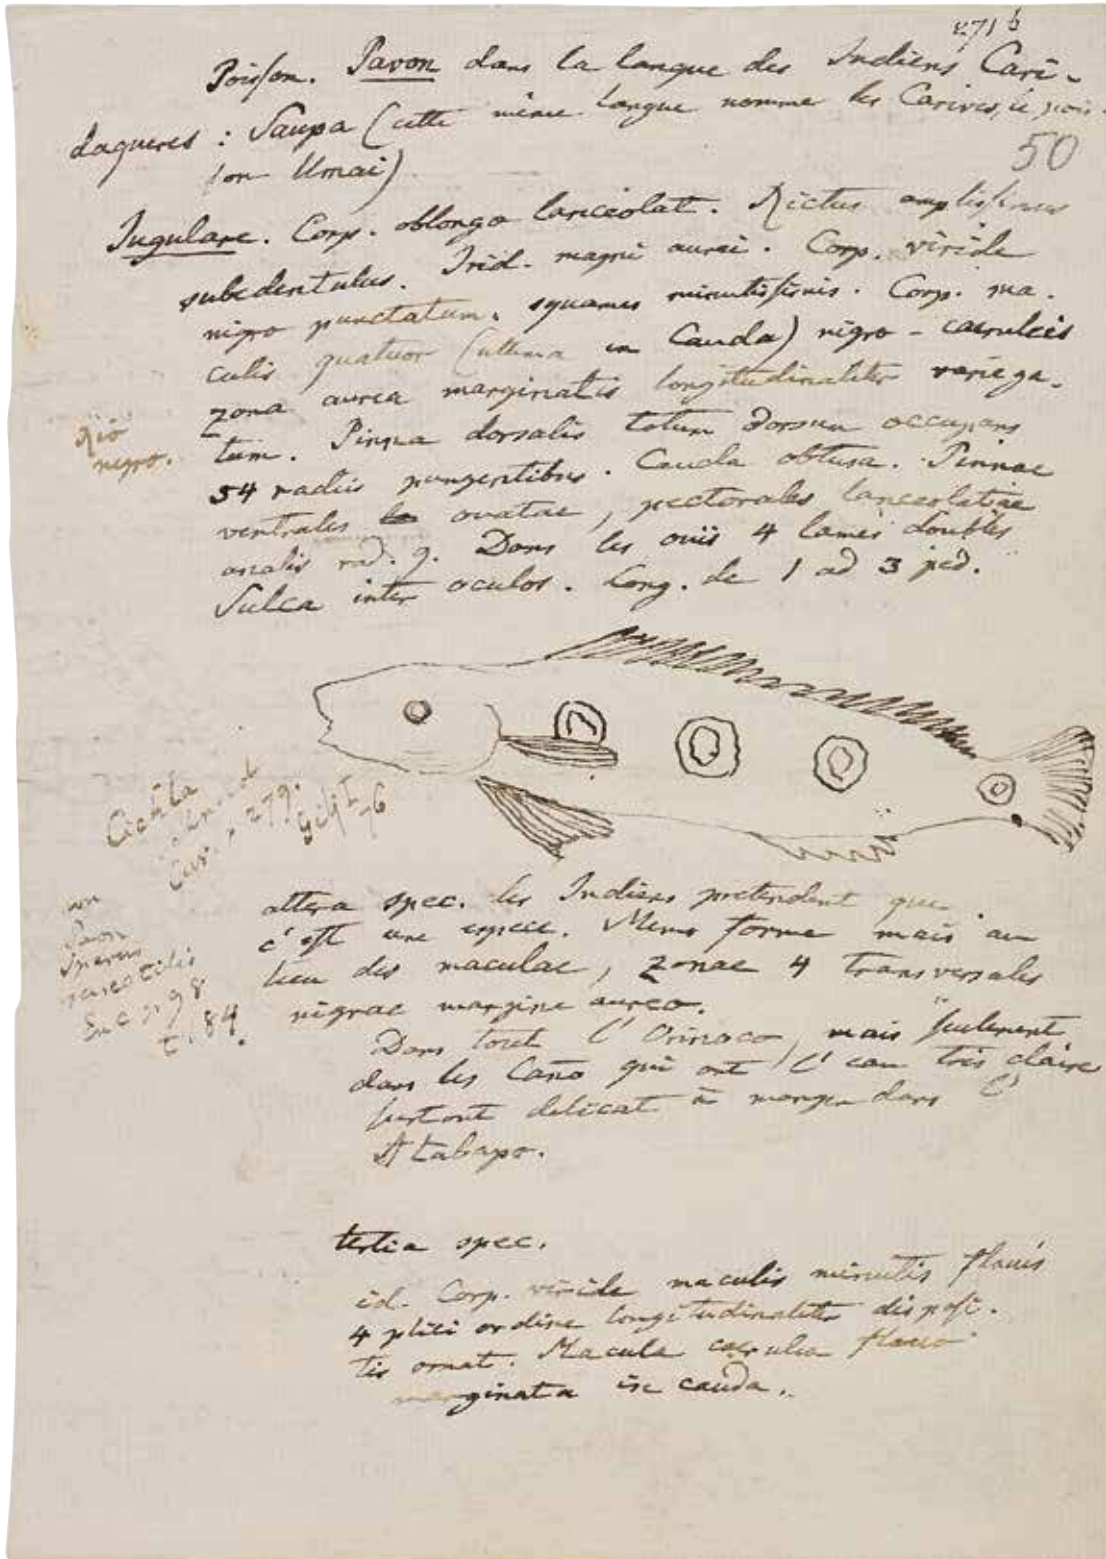 271 b
Poisson. Pavon dans la langue des Indiens Cari-
daqueres : Saupa (cette même langue nomme les Carives, le pois-
son Umai)
50
Jugulare. Corp. oblongo lanceolat. Rictus amplissimus
subedentulus. Irid. magni aurei. Corp. viride
nigro punctatum, squames minutissimis. Corp. ma-
culis quatuor (ultima in Cauda) nigro-caeruleis
zona aurea marginatis longitudinaliter variega-
tum. Pinna dorsalis totum dorsum occupans
Rio
negro.
54 radiis pungentibus. Cauda obtusa. Pinnae
ventrales ovatae, pectorales lanceolatae
analis rad. 9. Dans les ouïs 4 lames doubles
Sulca inter oculos. Long. de 1 ad 3 ped.
Cichla
p 279.
Gilj I
76
altera spec. les Indiens pretendent que
c'est une espece. Meme forme mais au
lieu des maculae, zonae 4 transversales
nigrae margine aureo.
non
Pavon
Sparus
98
t. 84.
Dans tout l'Orinoco, mais seulement
dans les Caño qui ont l'eau très claire
surtout delicat à manger dans l'
Atabapo.
tertia spec.
id. Corp. viride maculis minutis flavis
4 plici ordine longitudinaliter disposi-
tis ornat. Macula caerulea flavo
marginata in cauda.